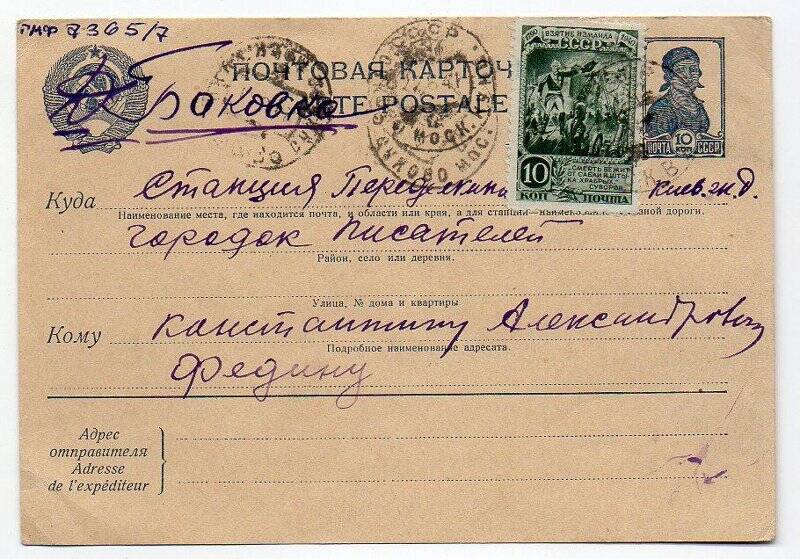 ГМФ 7365/7
ПОЧТОВАЯ КАРТОЧ
Баковка
TE POSTALE
СССР
МОСК.
1790 ВЗЯТИЕ ИЗМАИЛА 1940
СССР
СМЕРТЬ БЕЖИТ
ОТ САБЛИ И ШТЫ
КА ХРАБРЫХ
СУВОРОВ
10
КОП ПОЧТА
10 КОП.
ПОЧТА СССР
Куда Станция Переделкино Киев.ж.д.
Наименование места, где находится почта, и области или края, а для станции наимен ной дороги.
городок Писателей
Район, село или деревня.
Улица, № дома и квартиры
Кому Константину Александровичу
Подробное наименование адресата.
Федину
Адрес
отправителя
Adresse
de l'expéditeur